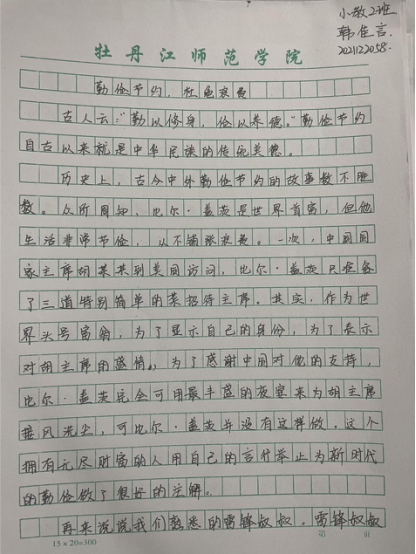 小教2班
韩佳言
2021220058
牡丹江师范学院
勤俭节约，杜绝浪费
古人云:“勤以修身，俭以养德。”勤俭节约
自古以来就是中华民族的传统美德。
历史上，古今中外勤俭节约的故事数不胜
数。众所周知，比尔·盖茨是世界首富，但他
生活非常节俭，从不铺张浪费。一次，中国国
家主席胡某某到美国访问，比尔·盖茨只准备
了三道特别简单的菜招待主席。其实，作为世
界头号富翁，为了显示自己的身份，为了表示
对胡主席的盛情，为了感谢中国对他的支持，
比尔·盖茨完全可用最丰盛的夜宴来为胡主席
接风洗尘，可比尔·盖茨并没有这样做。这个
拥有无尽财富的人用自己的言行举止为新时代
的勤俭做了很好的注解。
再来说说我们熟悉的雷锋叔叔。雷锋叔叔
15×20=300 第 页